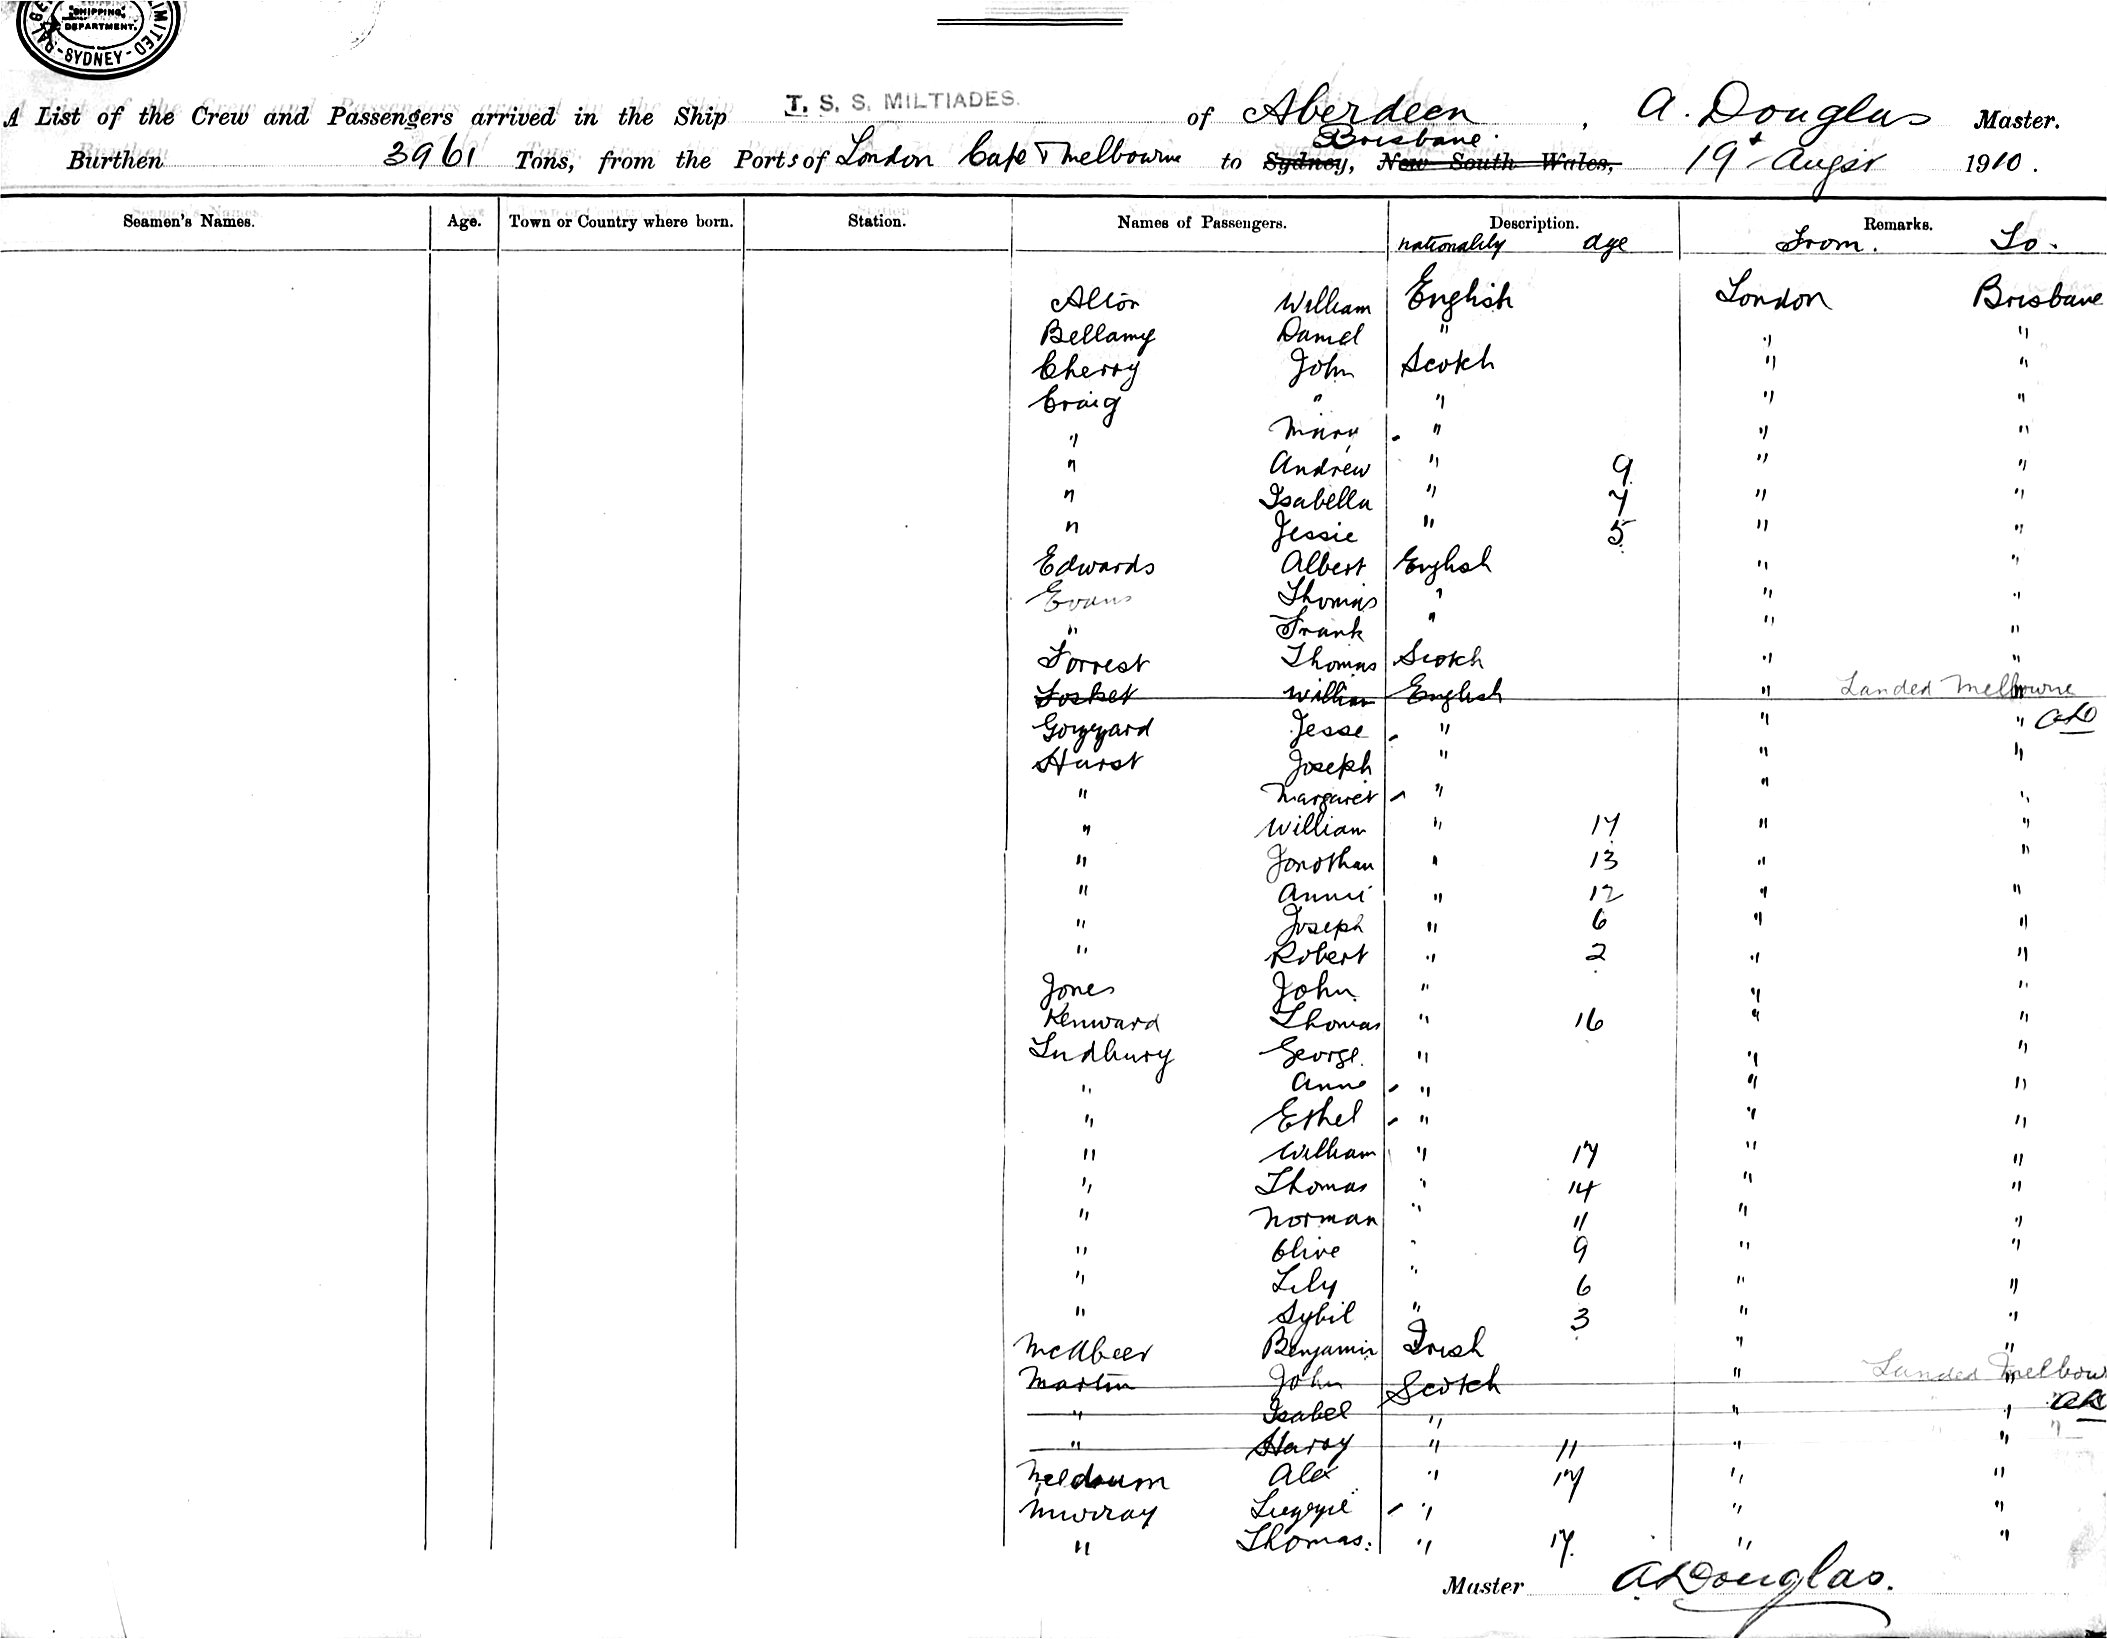 SHIPPING
DEPARTMENT.
LIMITED
SYDNEY
A List of the Crew and Passengers arrived in the Ship T. S. S. MILTIADES. of Aberdeen, A. Douglas Master.
Burthen 3961 Tons, from the Ports of London Cape & Melbourne to Sydney, New South Wales, Brisbane. 19 Augst 1910.
Seamen's Names. Age. Town or Country where born. Station. Names of Passengers. Description. Remarks.
nationality age From. To.
William English London Brisbane
Bellamy Daniel " " "
Cherry John Scotch " "
Craig " " " "
" Mary " " "
" Andrew " 9 " "
" Isabella " 7 " "
" Jessie " 5 " "
Edwards Albert English " "
Evans Thomas " " "
" Frank " " "
Forrest Thomas Scotch " "
Fosket William English " Landed Melbourne
Jesse " " "
Hurst Joseph " " "
" Margaret " " "
" William " 17 " "
" Jonothan " 13 " "
" Annie " 12 " "
" Joseph " 6 " "
" Robert " 2 " "
Jones John " " "
Kenward Thomas " 16 " "
Ludbury George " " "
" Anne " " "
" Ethel " " "
" William " 17 " "
" Thomas " 14 " "
" Norman " 11 " "
" Olive " 9 " "
" Lily " 6 " "
" Sybil " 3 " "
Benjamin Irish " "
Martin John Scotch " Landed Melbou
" Isabel " " "
" Harry " 11 " "
Meldrum Alex " 17 " "
Murray " " "
" Thomas " 17 " "
Master A Douglas.